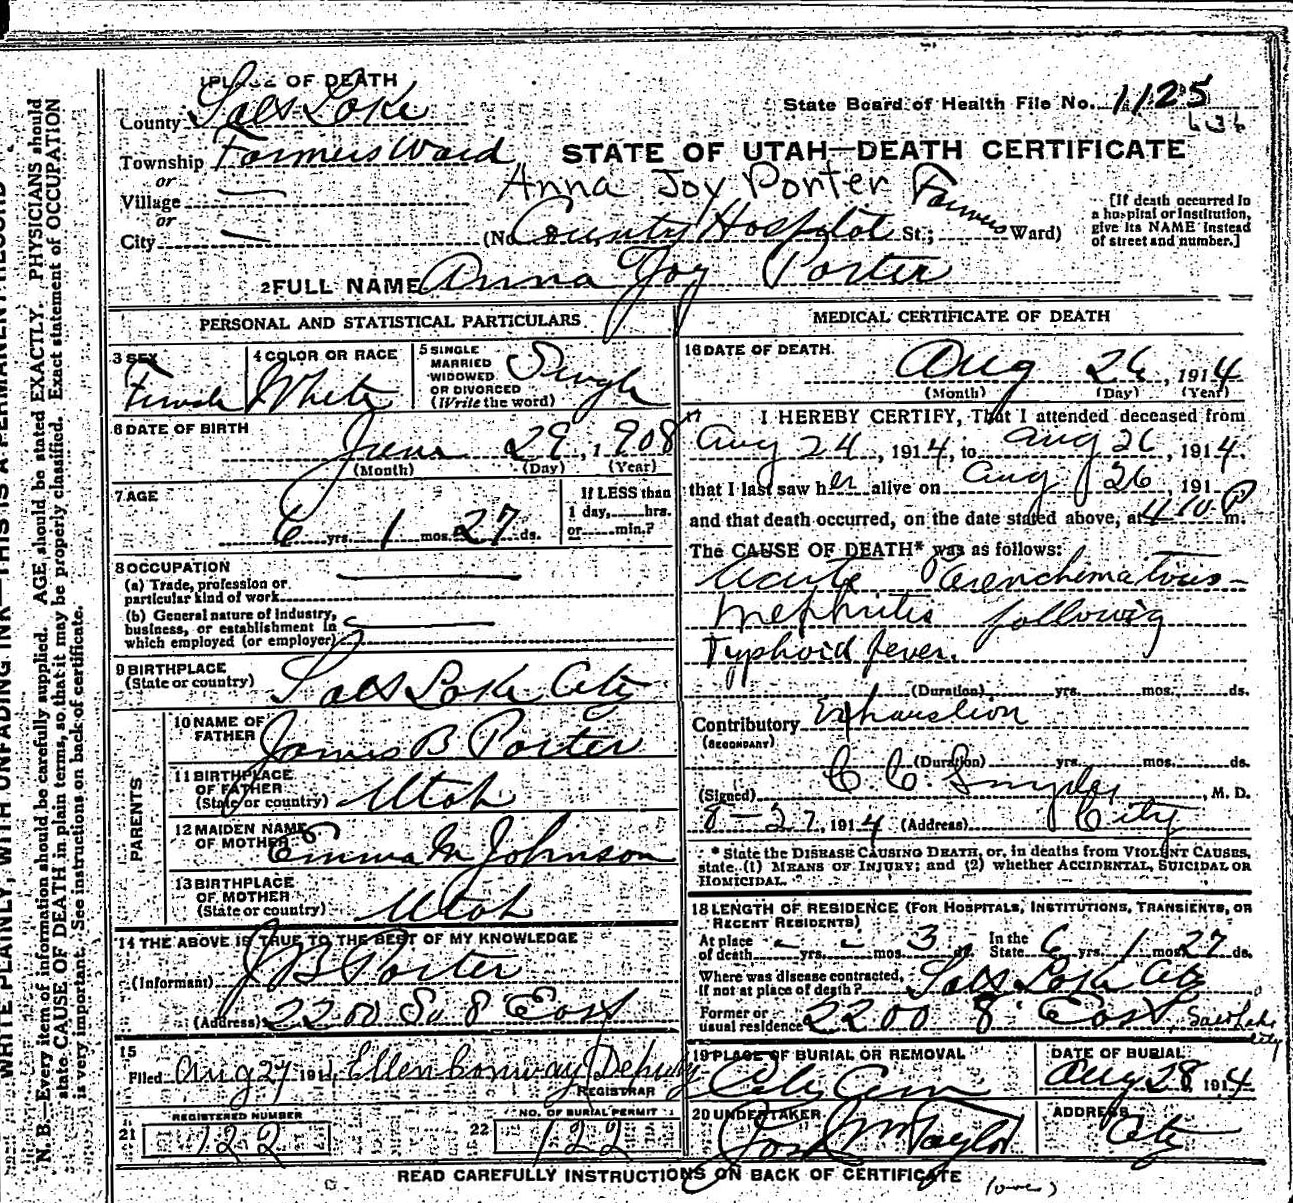 1 PLACE OF DEATH
County Salt Lake
State Board of Health File No. 1125
636
Township Farmers Ward
STATE OF UTAH—DEATH CERTIFICATE
or
Village
Anna Joy Porter
or
City
(No. County Hospital St.; Farmers Ward)
[If death occurred in
a hospital or institution,
give its NAME instead
of street and number.]
2 FULL NAME Anna Joy Porter
PERSONAL AND STATISTICAL PARTICULARS
3 SEX
Female
4 COLOR OR RACE
White
5 SINGLE
MARRIED
WIDOWED
OR DIVORCED
(Write the word)
Single
6 DATE OF BIRTH
June 29, 1908
(Month) (Day) (Year)
7 AGE
6 yrs. 1 mos. 27 ds.
If LESS than
1 day, hrs.
or min.?
8 OCCUPATION
(a) Trade, profession or
particular kind of work
(b) General nature of industry,
business, or establishment in
which employed (or employer)
9 BIRTHPLACE
(State or country)
Salt Lake City
PARENTS
10 NAME OF
FATHER
James B Porter
11 BIRTHPLACE
OF FATHER
(State or country)
Utah
12 MAIDEN NAME
OF MOTHER
Emma M Johnson
13 BIRTHPLACE
OF MOTHER
(State or country)
Utah
14 THE ABOVE IS TRUE TO THE BEST OF MY KNOWLEDGE
(Informant) J B Porter
(Address) 2200 So 8 East
15
Filed Aug 27 191 , Ellen Conway Deputy
REGISTRAR
REGISTERED NUMBER
21 122
NO. OF BURIAL PERMIT
22 122
MEDICAL CERTIFICATE OF DEATH
16 DATE OF DEATH.
Aug 26, 1914
(Month) (Day) (Year)
17 I HEREBY CERTIFY, That I attended deceased from
Aug 24, 1914, to Aug 26, 1914.
that I last saw her alive on Aug 26 191
and that death occurred, on the date stated above, at 4 10 P m.
The CAUSE OF DEATH* was as follows:
Acute Parenchimatous-
Nephritis following
Typhoid fever.
(Duration) yrs. mos. ds.
Contributory Exhaustion
(SECONDARY)
(Duration) yrs. mos. ds.
(Signed) C C. Snyder, M. D.
8-27, 1914 (Address) City
* State the DISEASE CAUSING DEATH, or, in deaths from VIOLENT CAUSES,
state (1) MEANS OF INJURY; and (2) whether ACCIDENTAL, SUICIDAL OR
HOMICIDAL.
18 LENGTH OF RESIDENCE (FOR HOSPITALS, INSTITUTIONS, TRANSIENTS, OR
RECENT RESIDENTS)
At place of death - yrs. - mos. 3 ds. In the State 6 yrs. 1 mos. 27 ds.
Where was disease contracted,
if not at place of death? Salt Lake City
Former or
usual residence 2200 8 East, Salt Lake City
19 PLACE OF BURIAL OR REMOVAL
City Cem
DATE OF BURIAL
Aug 28 1914
20 UNDERTAKER
Jos Wm Taylor
ADDRESS
City
READ CAREFULLY INSTRUCTIONS ON BACK OF CERTIFICATE
(over)
WRITE PLAINLY, WITH UNFADING INK—THIS IS A PERMANENT RECORD
N. B.—Every item of information should be carefully supplied. AGE should be stated EXACTLY. PHYSICIANS should
state CAUSE OF DEATH in plain terms, so that it may be properly classified. Exact statement of OCCUPATION
is very important. See instructions on back of certificate.